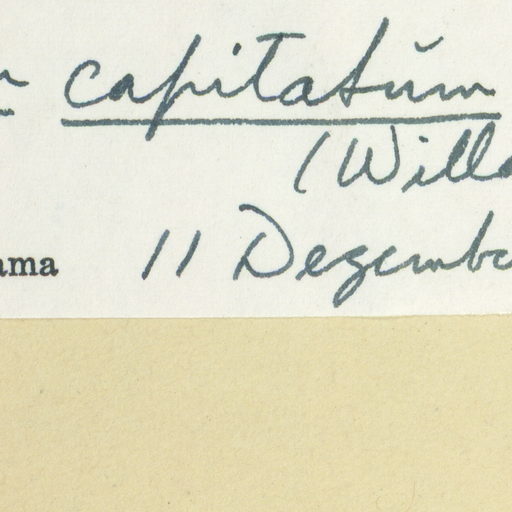 capitatum
(Willd
ama 11 Dezembe